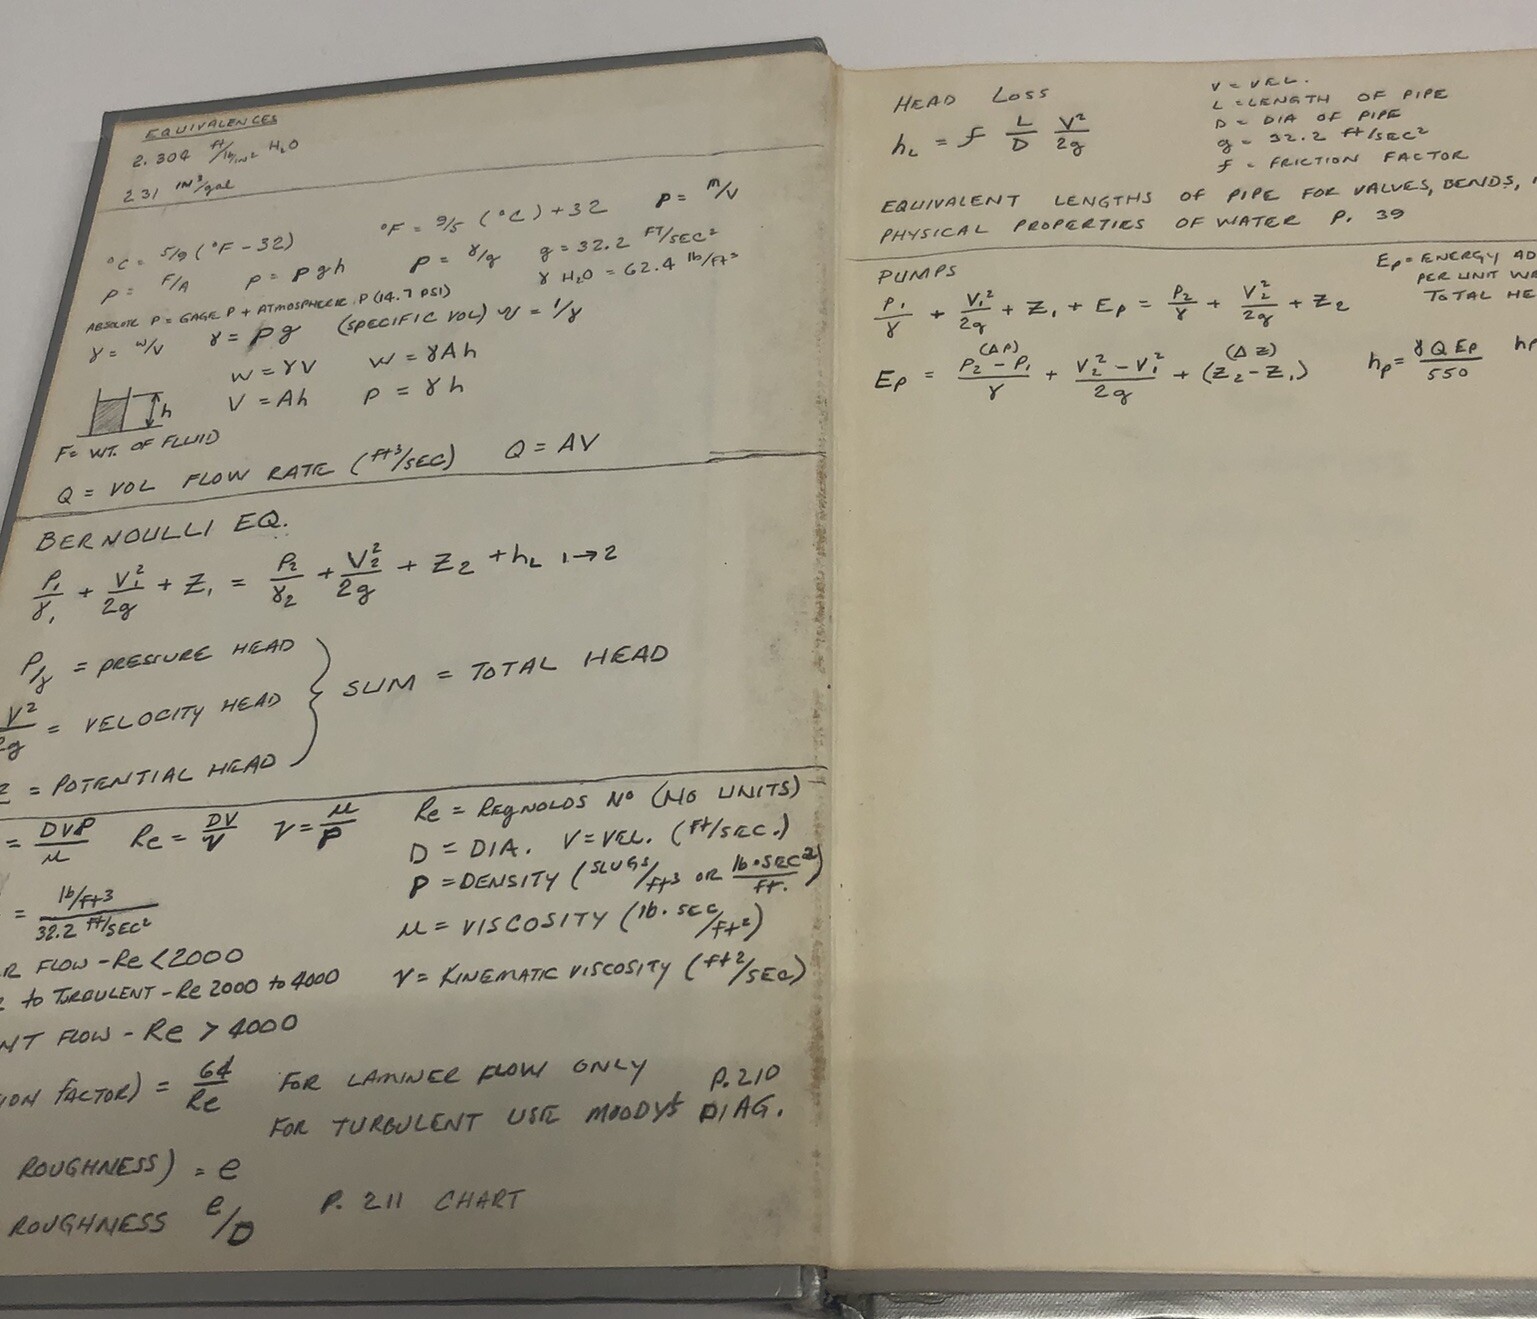 EQUIVALENCES
2.304 ft/lb/in² H₂O
231 in³/gal
°C = 5/9 (°F - 32)
°F = 9/5 (°C) + 32
ρ = m/v
p = F/A
p = ρgh
ρ = γ/g
g = 32.2 FT/SEC²
γ H₂O = 62.4 lb/ft³
ABSOLUTE P = GAGE P + ATMOSPHERIC P (14.7 PSI)
γ = w/v
γ = ρg
(SPECIFIC VOL) v = 1/γ
W = γV
W = γAh
V = Ah
P = γh
h
F = WT. OF FLUID
Q = VOL FLOW RATE (ft³/SEC) Q = AV
BERNOULLI EQ.
P₁/γ₁ + V₁²/2g + Z₁ = P₂/γ₂ + V₂²/2g + Z₂ + hL 1→2
P/γ = PRESSURE HEAD
V²/2g = VELOCITY HEAD
Z = POTENTIAL HEAD
} SUM = TOTAL HEAD
= DVρ/μ Re = DV/ν ν = μ/ρ
Re = REYNOLDS Nº (NO UNITS)
D = DIA. V = VEL. (ft/SEC.)
ρ = DENSITY (SLUGS/ft³ OR lb·SEC²/ft.)
= lb/ft3 / 32.2 ft/SEC²
μ = VISCOSITY (lb·SEC/ft²)
R FLOW - Re < 2000
to TURBULENT - Re 2000 to 4000
ν = KINEMATIC VISCOSITY (ft²/SEC)
NT FLOW - Re > 4000
ION FACTOR) = 64/Re FOR LAMINER FLOW ONLY
P. 210
FOR TURBULENT USE MOODYS DIAG.
ROUGHNESS) = e
ROUGHNESS e/D P. 211 CHART
HEAD LOSS
hL = f L/D V²/2g
V = VEL.
L = LENGTH OF PIPE
D = DIA OF PIPE
g = 32.2 ft/SEC²
f = FRICTION FACTOR
EQUIVALENT LENGTHS OF PIPE FOR VALVES, BENDS,
PHYSICAL PROPERTIES OF WATER P. 39
PUMPS
EP = ENERGY AD
PER UNIT W
TOTAL HE
P₁/γ + V₁²/2g + Z₁ + EP = P₂/γ + V₂²/2g + Z₂
EP = (ΔP) P₂ - P₁/γ + V₂² - V₁²/2g + (ΔZ) (Z₂ - Z₁)
hp = γ Q EP/550
hp